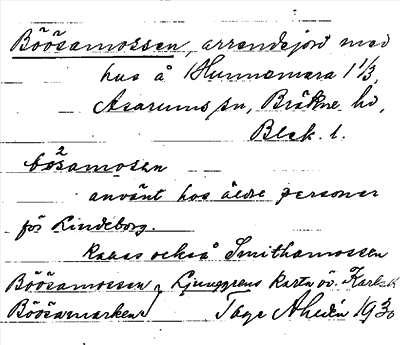 Böösamossen, arrendejord med
hus å Hunnamara 1 1/3,
Asarums sn, Bräkne hd,
Blek. l.
bo²samosen
använt hos äldre personer
för Lindeborg.
kallas också Smithamossen
Böösamossen, Ljunggrens karta öv. Karlsh
Böösamarken
Tage Ahldén 1930